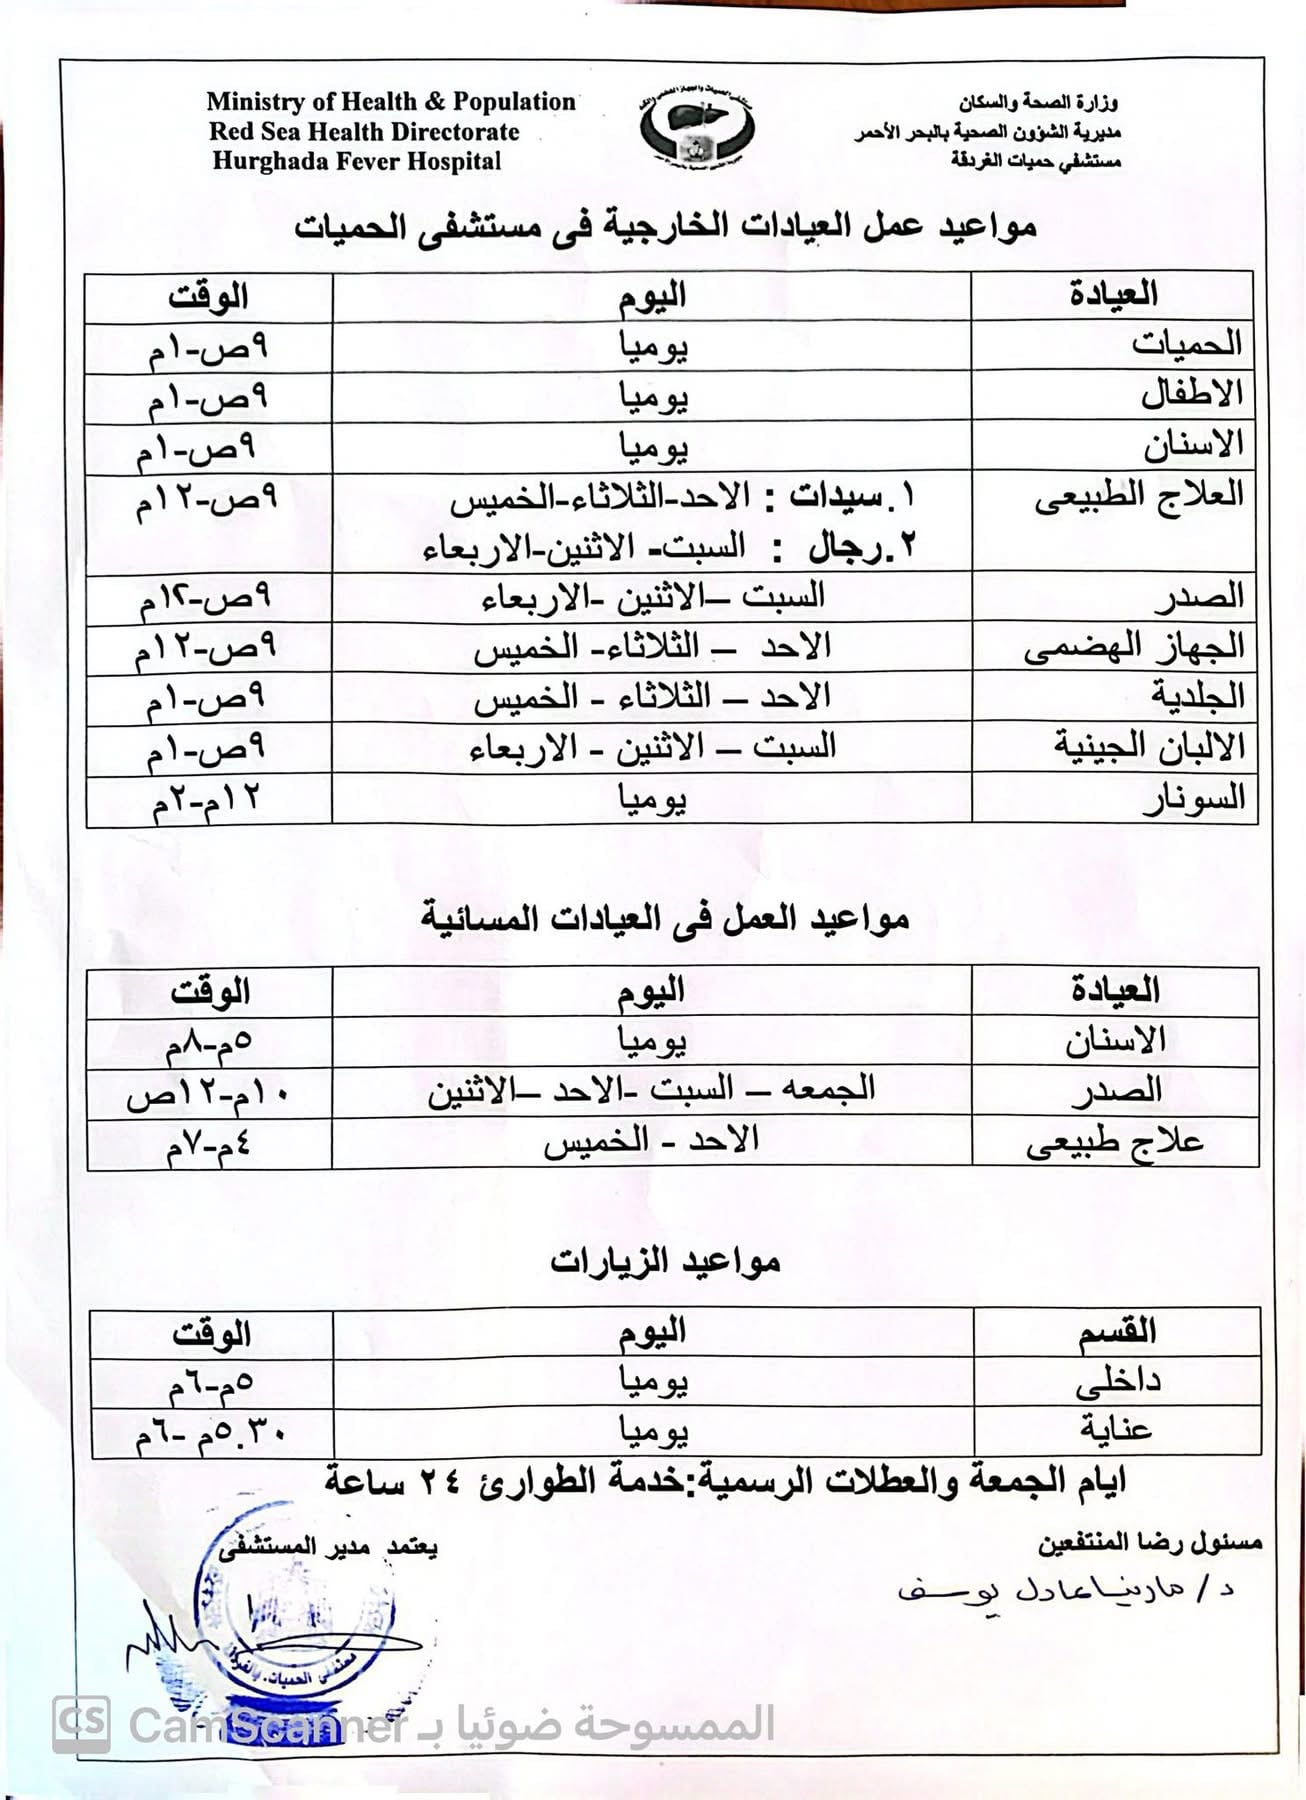 Ministry of Health & Population
Red Sea Health Directorate
Hurghada Fever Hospital
وزارة الصحة والسكان
مديرية الشؤون الصحية بالبحر الأحمر
مستشفي حميات الغردقة
مواعيد عمل العيادات الخارجية فى مستشفى الحميات
العيادة اليوم الوقت
الحميات يوميا ٩ص-١م
الاطفال يوميا ٩ص-١م
الاسنان يوميا ٩ص-١م
العلاج الطبيعى ١.سيدات : الاحد-الثلاثاء-الخميس ٩ص-١٢م
٢.رجال : السبت- الاثنين-الاربعاء
الصدر السبت –الاثنين -الاربعاء ٩ص-١٢م
الجهاز الهضمى الاحد – الثلاثاء- الخميس ٩ص-١٢م
الجلدية الاحد – الثلاثاء - الخميس ٩ص-١م
الالبان الجينية السبت – الاثنين - الاربعاء ٩ص-١م
السونار يوميا ١٢م-٢م
مواعيد العمل فى العيادات المسائية
العيادة اليوم الوقت
الاسنان يوميا ٥م-٨م
الصدر الجمعه – السبت -الاحد –الاثنين ١٠م-١٢ص
علاج طبيعى الاحد - الخميس ٤م-٧م
مواعيد الزيارات
القسم اليوم الوقت
داخلى يوميا ٥م-٦م
عناية يوميا ٥.٣٠م -٦م
ايام الجمعة والعطلات الرسمية:خدمة الطوارئ ٢٤ ساعة
مسئول رضا المنتفعين
يعتمد مدير المستشفى
د/ مارينا عادل يوسف
CS الممسوحة ضوئيا بـ CamScanner